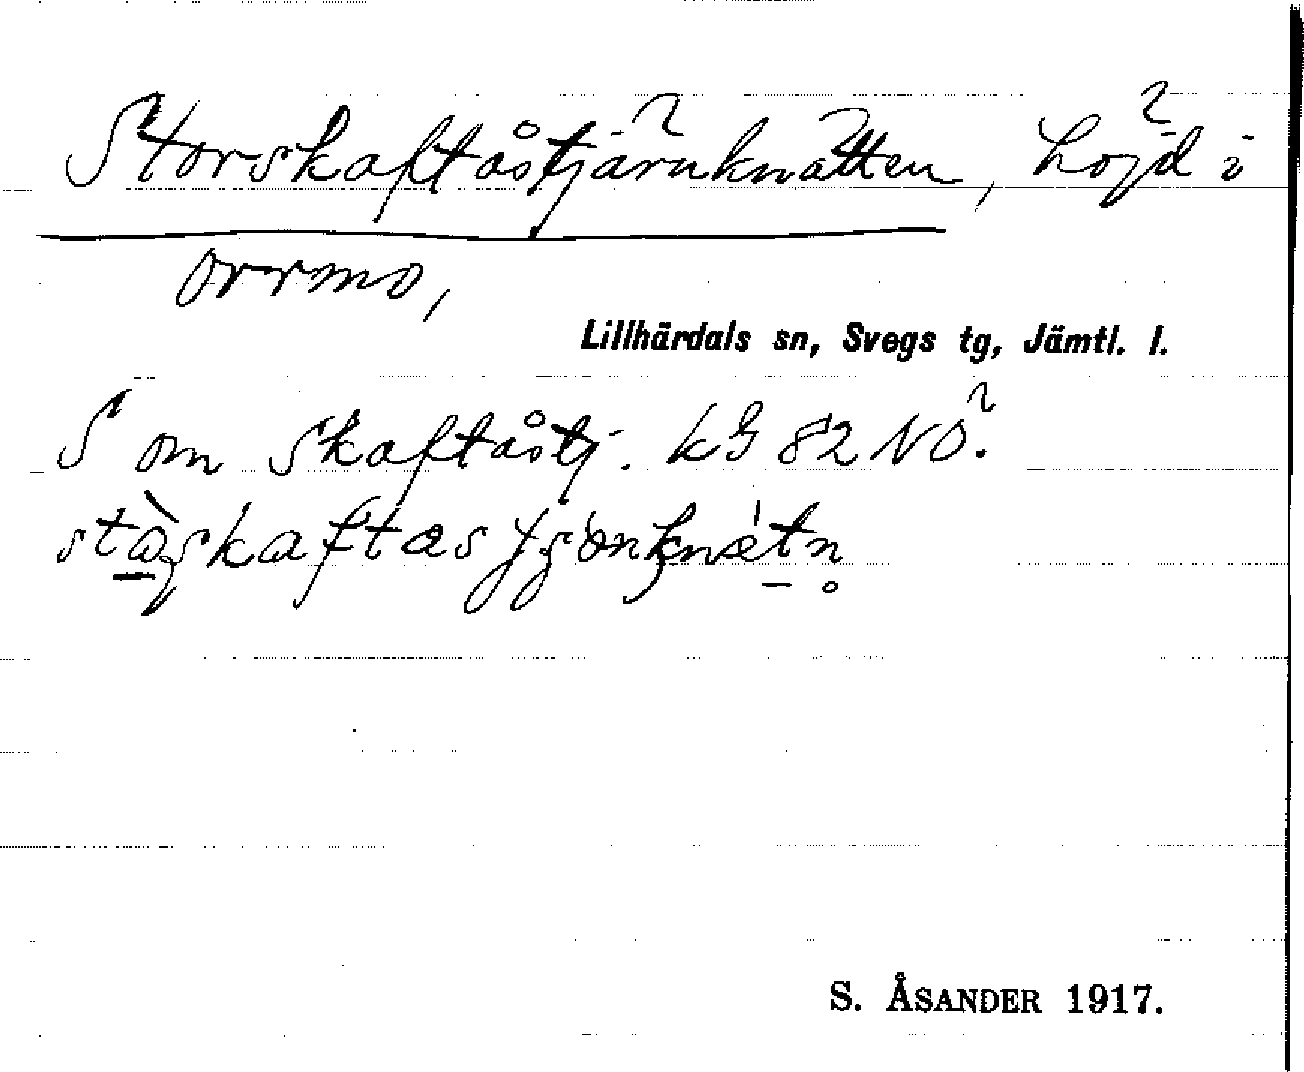 Storskaftåstjärnknätten, höjd i
Orrmo,
Lillhärdals sn, Svegs tg, Jämtl. l.
S om Skaftåstj. kG 82 NO.
S. ÅSANDER 1917.